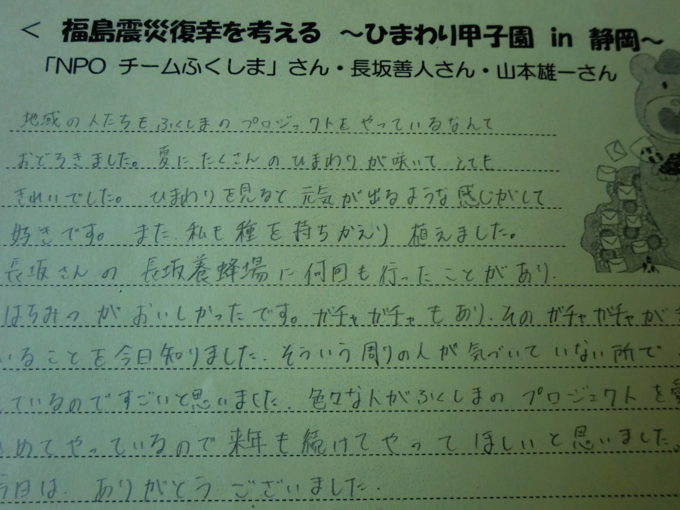 < 福島震災復幸を考える ～ひまわり甲子園 in 静岡～
「NPO チームふくしま」さん・長坂善人さん・山本雄一さん
地域の人たちもふくしまのプロジェクトをやっているなんて
おどろきました。夏にたくさんのひまわりが咲いてとても
きれいでした。ひまわりを見ると元気が出るような感じがして
好きです。また、私も種を持ちかえり植えました。
長坂さんの長坂養蜂場に何回も行ったことがあり、
はちみつがおいしかったです。ガチャガチャもあり、そのガチャガチャが
いることを今日知りました。そういう周りの人が気づいていない所で
しているのですごいと思いました。色々な人がふくしまのプロジェクトを
めてやっているので来年も続けてやってほしいと思いました。
今日は、ありがとうございました。